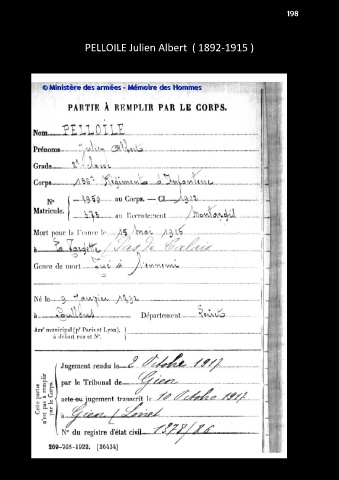 198
PELLOILE Julien Albert ( 1892-1915 )
© Ministère des armées - Mémoire des Hommes
PARTIE À REMPLIR PAR LE CORPS.
Nom PELLOILE
Prénoms Julien Albert
Grade 2e classe
Corps Régiment d'Infanterie
N° 1959 au Corps. — Cl. 1912
Matricule. 573 au Recrutement Montargis
Mort pour la France le 15 mai 1915
à La Targette / Pas de Calais
Genre de mort Tué à l'ennemi
Né le 9 Janvier 1892
à Département Loiret
Arrt municipal (pr Paris et Lyon),
à défaut rue et N°.
Cette partie
n'est pas à remplir
par le Corps.
Jugement rendu le 2 Octobre 1917
par le Tribunal de Gien
acte ou jugement transcrit le 10 Octobre 1917
à Gien / Loiret
N° du registre d'état civil 1378/86
269-708-1922. [26434]